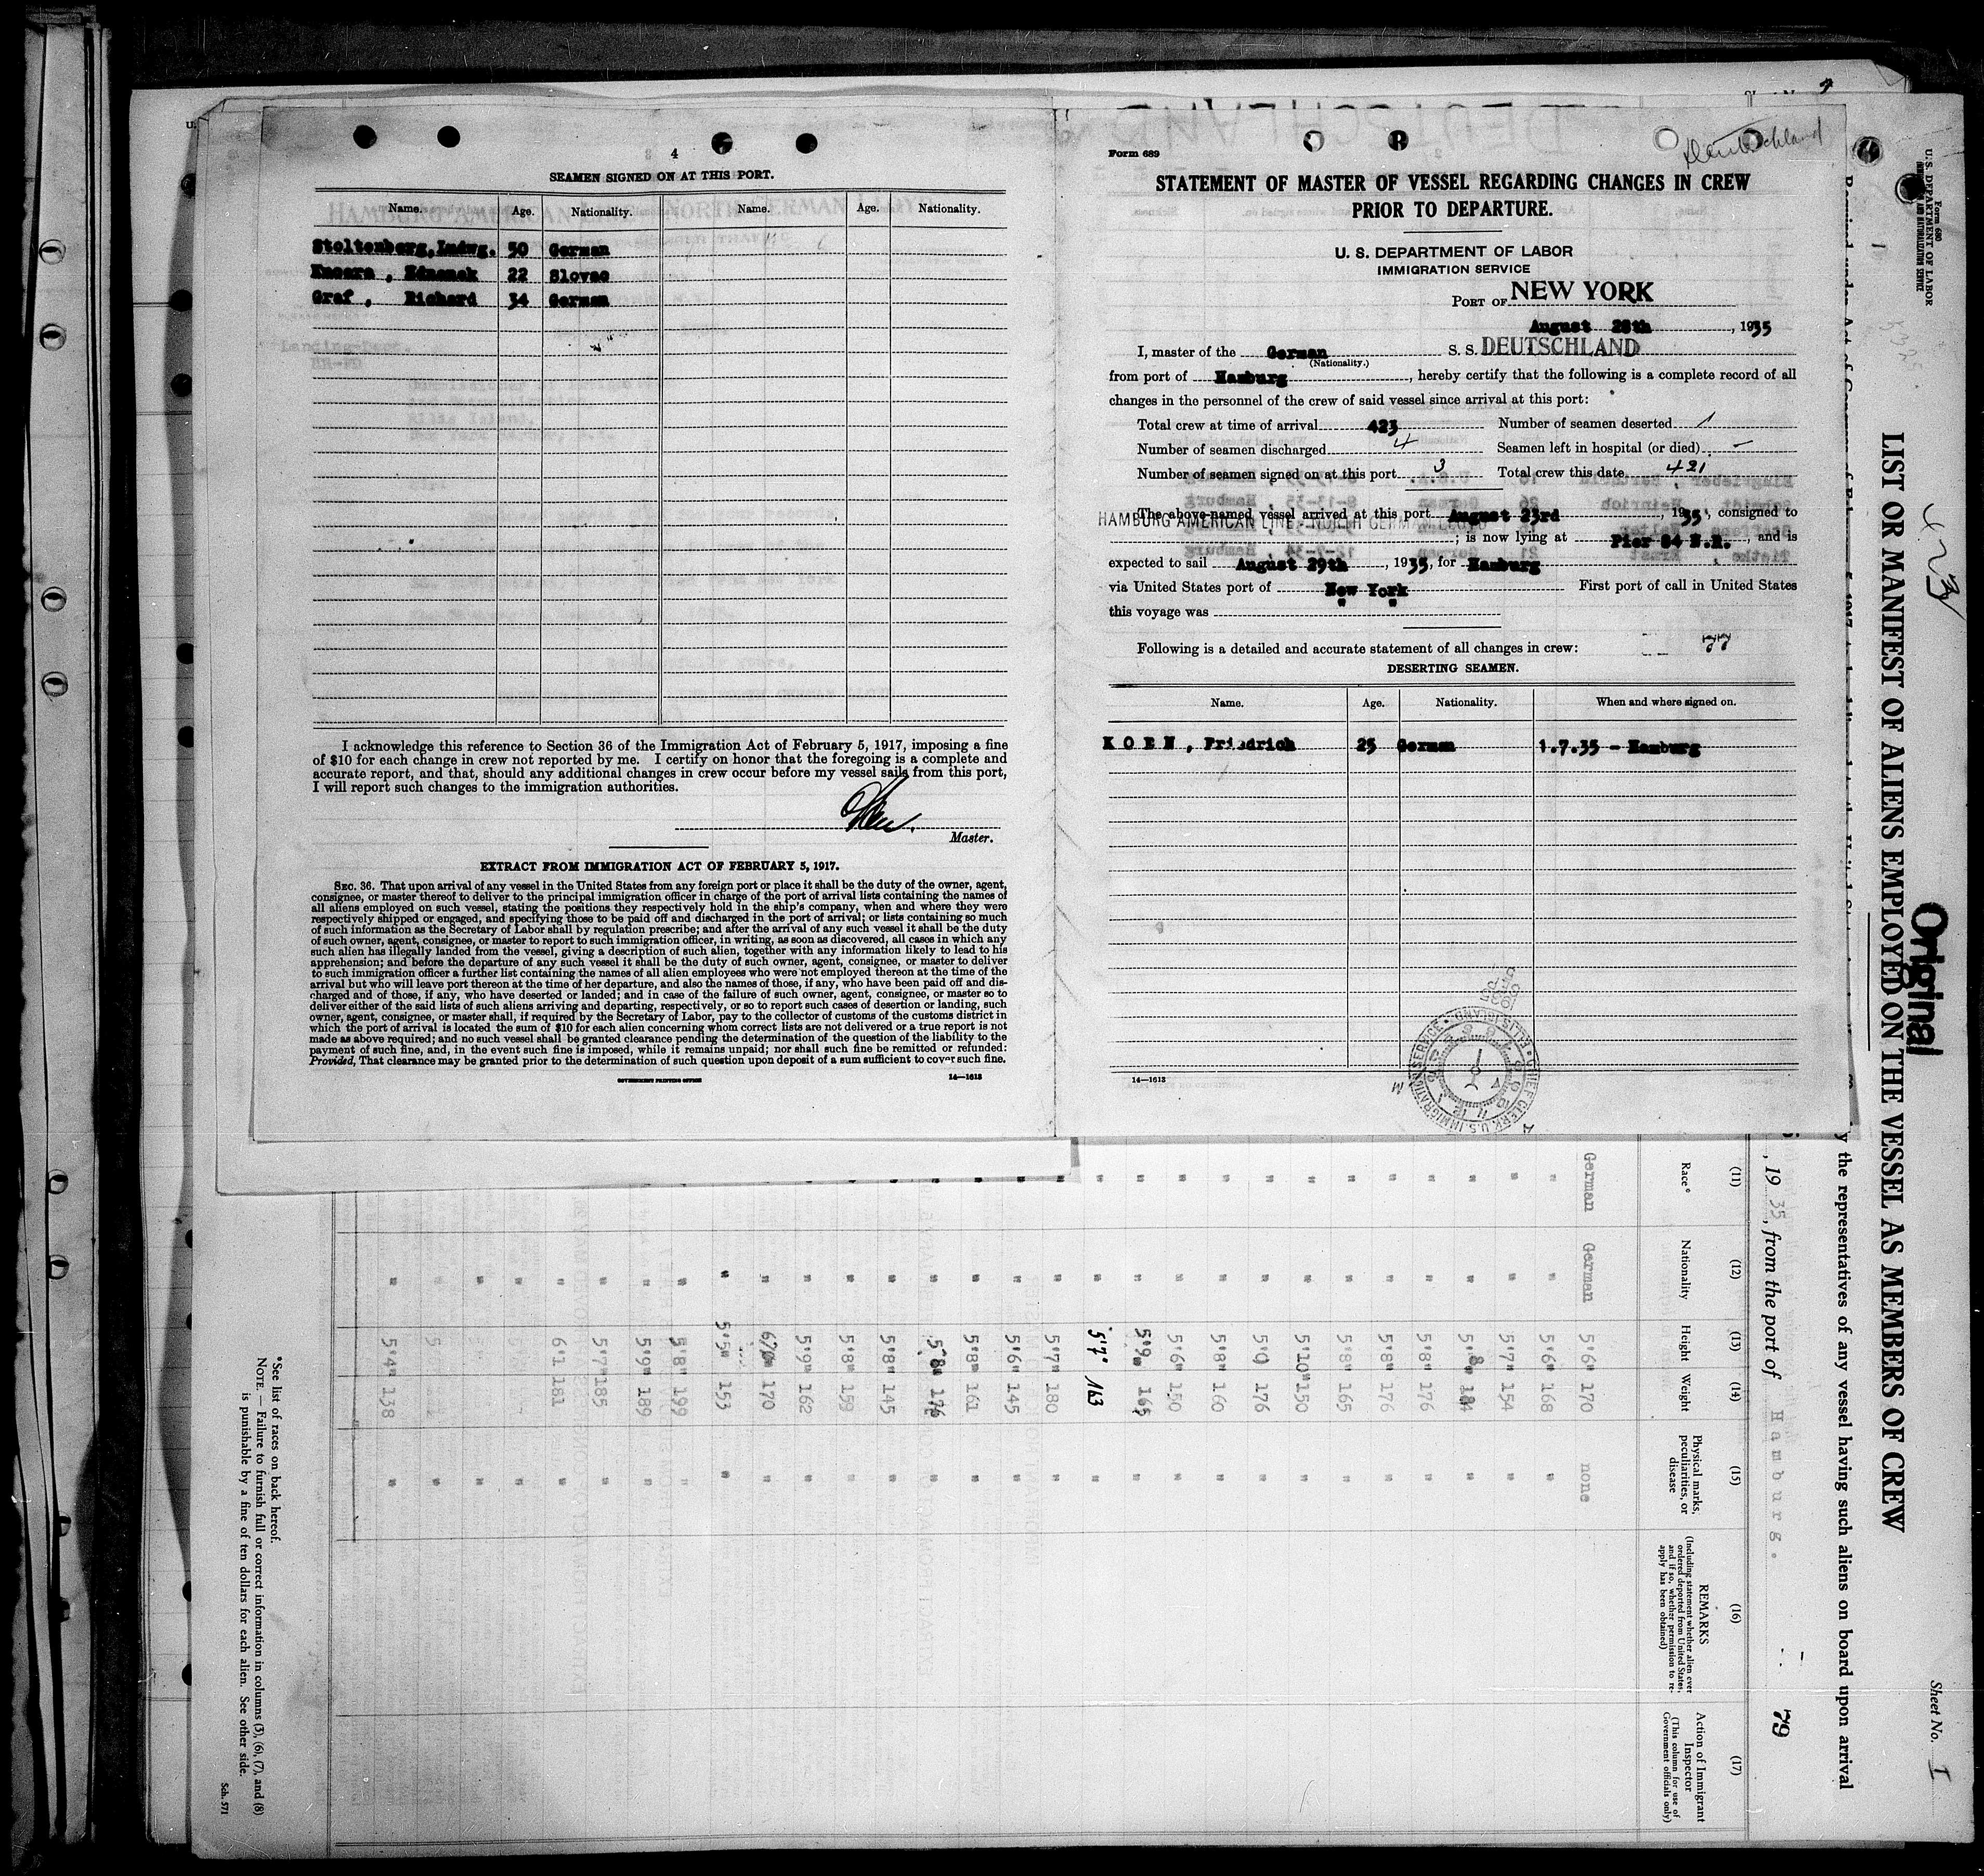 4
SEAMEN SIGNED ON AT THIS PORT.
Name. Age. Nationality. Name. Age. Nationality.
Stoltenberg, Ludwg. 50 German
22 Slovac
Graf, Richard 34 German
I acknowledge this reference to Section 36 of the Immigration Act of February 5, 1917, imposing a fine
of $10 for each change in crew not reported by me. I certify on honor that the foregoing is a complete and
accurate report, and that, should any additional changes in crew occur before my vessel sails from this port,
I will report such changes to the immigration authorities.
Master.
EXTRACT FROM IMMIGRATION ACT OF FEBRUARY 5, 1917.
SEC. 36. That upon arrival of any vessel in the United States from any foreign port or place it shall be the duty of the owner, agent,
consignee, or master thereof to deliver to the principal immigration officer in charge of the port of arrival lists containing the names of
all aliens employed on such vessel, stating the positions they respectively hold in the ship's company, when and where they were
respectively shipped or engaged, and specifying those to be paid off and discharged in the port of arrival; or lists containing so much
of such information as the Secretary of Labor shall by regulation prescribe; and after the arrival of any such vessel it shall be the duty
of such owner, agent, consignee, or master to report to such immigration officer, in writing, as soon as discovered, all cases in which any
such alien has illegally landed from the vessel, giving a description of such alien, together with any information likely to lead to his
apprehension; and before the departure of any such vessel it shall be the duty of such owner, agent, consignee, or master to deliver
to such immigration officer a further list containing the names of all alien employees who were not employed thereon at the time of the
arrival but who will leave port thereon at the time of her departure, and also the names of those, if any, who have been paid off and dis-
charged and of those, if any, who have deserted or landed; and in case of the failure of such owner, agent, consignee, or master so to
deliver either of the said lists of such aliens arriving and departing, respectively, or so to report such cases of desertion or landing, such
owner, agent, consignee, or master shall, if required by the Secretary of Labor, pay to the collector of customs of the customs district in
which the port of arrival is located the sum of $10 for each alien concerning whom correct lists are not delivered or a true report is not
made as above required; and no such vessel shall be granted clearance pending the determination of the question of the liability to the
payment of such fine, and, in the event such fine is imposed, while it remains unpaid; nor shall such fine be remitted or refunded:
Provided, That clearance may be granted prior to the determination of such question upon deposit of a sum sufficient to cover such fine.
GOVERNMENT PRINTING OFFICE 14—1613
Form 689
Deutschland
STATEMENT OF MASTER OF VESSEL REGARDING CHANGES IN CREW
PRIOR TO DEPARTURE.
U. S. DEPARTMENT OF LABOR
IMMIGRATION SERVICE
PORT OF NEW YORK
August 28th, 1935
I, master of the German S. S. DEUTSCHLAND
(Nationality.)
from port of Hamburg, hereby certify that the following is a complete record of all
changes in the personnel of the crew of said vessel since arrival at this port:
Total crew at time of arrival 423 Number of seamen deserted 1
Number of seamen discharged 4 Seamen left in hospital (or died) -
Number of seamen signed on at this port 3 Total crew this date 421
The above-named vessel arrived at this port August 23rd, 1935, consigned to
HAMBURG AMERICAN LINE - NORTH GERMAN LLOYD
; is now lying at Pier 84 N.R., and is
expected to sail August 29th, 1935, for Hamburg
via United States port of New York First port of call in United States
this voyage was " "
Following is a detailed and accurate statement of all changes in crew: 77
DESERTING SEAMEN.
Name. Age. Nationality. When and where signed on.
KOEN, Friedrich 25 German 1.7.35 - Hamburg
14—1613
CHIEF CLERK, U.S. IMMIGRATION SERVICE ELLIS ISLAND
Form 680
U. S. DEPARTMENT OF LABOR
IMMIGRATION AND NATURALIZATION SERVICE
423
Original
Sheet No. I
LIST OR MANIFEST OF ALIENS EMPLOYED ON THE VESSEL AS MEMBERS OF CREW
y the representatives of any vessel having such aliens on board upon arrival
, 1935, from the port of Hamburg. 79
(11) (12) (13) (14) (15) (16) (17)
Race* Nationality Height Weight Physical marks, peculiarities, or disease REMARKS (Including statement whether alien ever ordered deported from United States, and if so, whether permission to re-apply has been obtained) Action of Immigrant Inspector (This column for use of Government officials only)
German German 5'6" 170 none
" " 5'6" 168 "
" " 5'7" 154 "
" " 5'8" 184 "
" " 5'8" 176 "
" " 5'8" 176 "
" " 5'8" 165 "
" " 5'10" 150 "
" " 176 "
" " 5'8" 160 "
" " 5'6" 150 "
" " 5'9" 165 "
" " 5'7" 163 "
" " 5'7" 180 "
" " 5'6" 145 "
" " 5'8" 161 "
" " 5'8" 176 "
" " 5'8" 145 "
" " 5'8" 159 "
" " 5'9" 162 "
" " 170 "
" " 5'5" 153 "
" " 5'8" 199 "
" " 5'9" 189 "
" " 5'7" 185 "
" " 6'1 181 "
" 5'4" 138 "
*See list of races on back hereof.
NOTE.—Failure to furnish full or correct information in columns (3), (6), (7), and (8)
is punishable by a fine of ten dollars for each alien. See other side.
Sch. 571